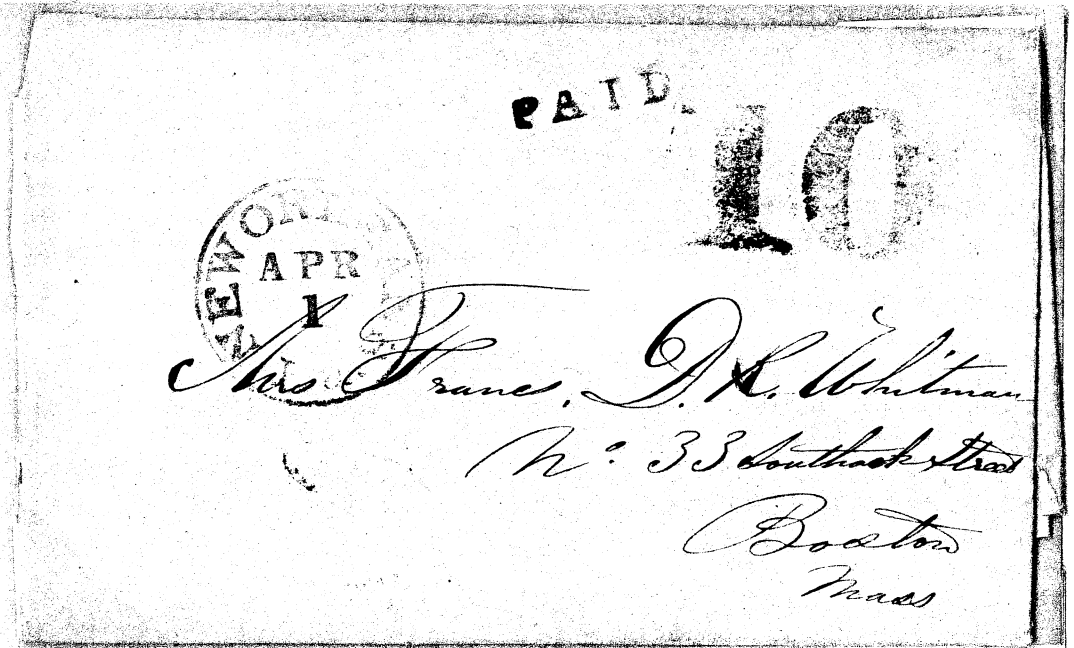 PAID
10
NEW ORLEA
APR
1
Mrs Frances. D. R. Whitman
No. 33 Southack Street
Boston
Mass